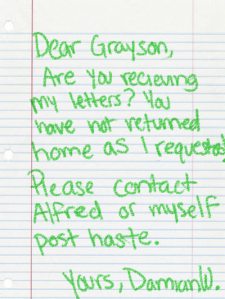 Dear Grayson,
Are you recieving
my letters? You
have not returned
home as I requested
Please contact
Alfred or myself
post haste.
Yours, Damian W.